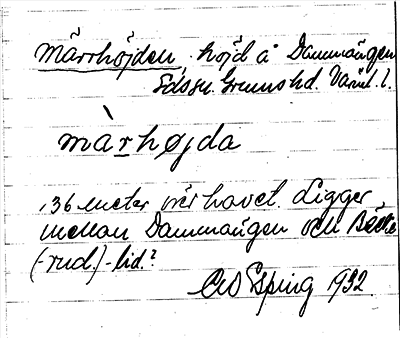 Märrhöjden, höjd å Dammängen
Edssn. Grums hd. Värml. l.
màrhøjda
136 meter över havet. Ligger
mellan Dammängen och Bäcke
(-rud.) -lid.?
CW Esping 1932.